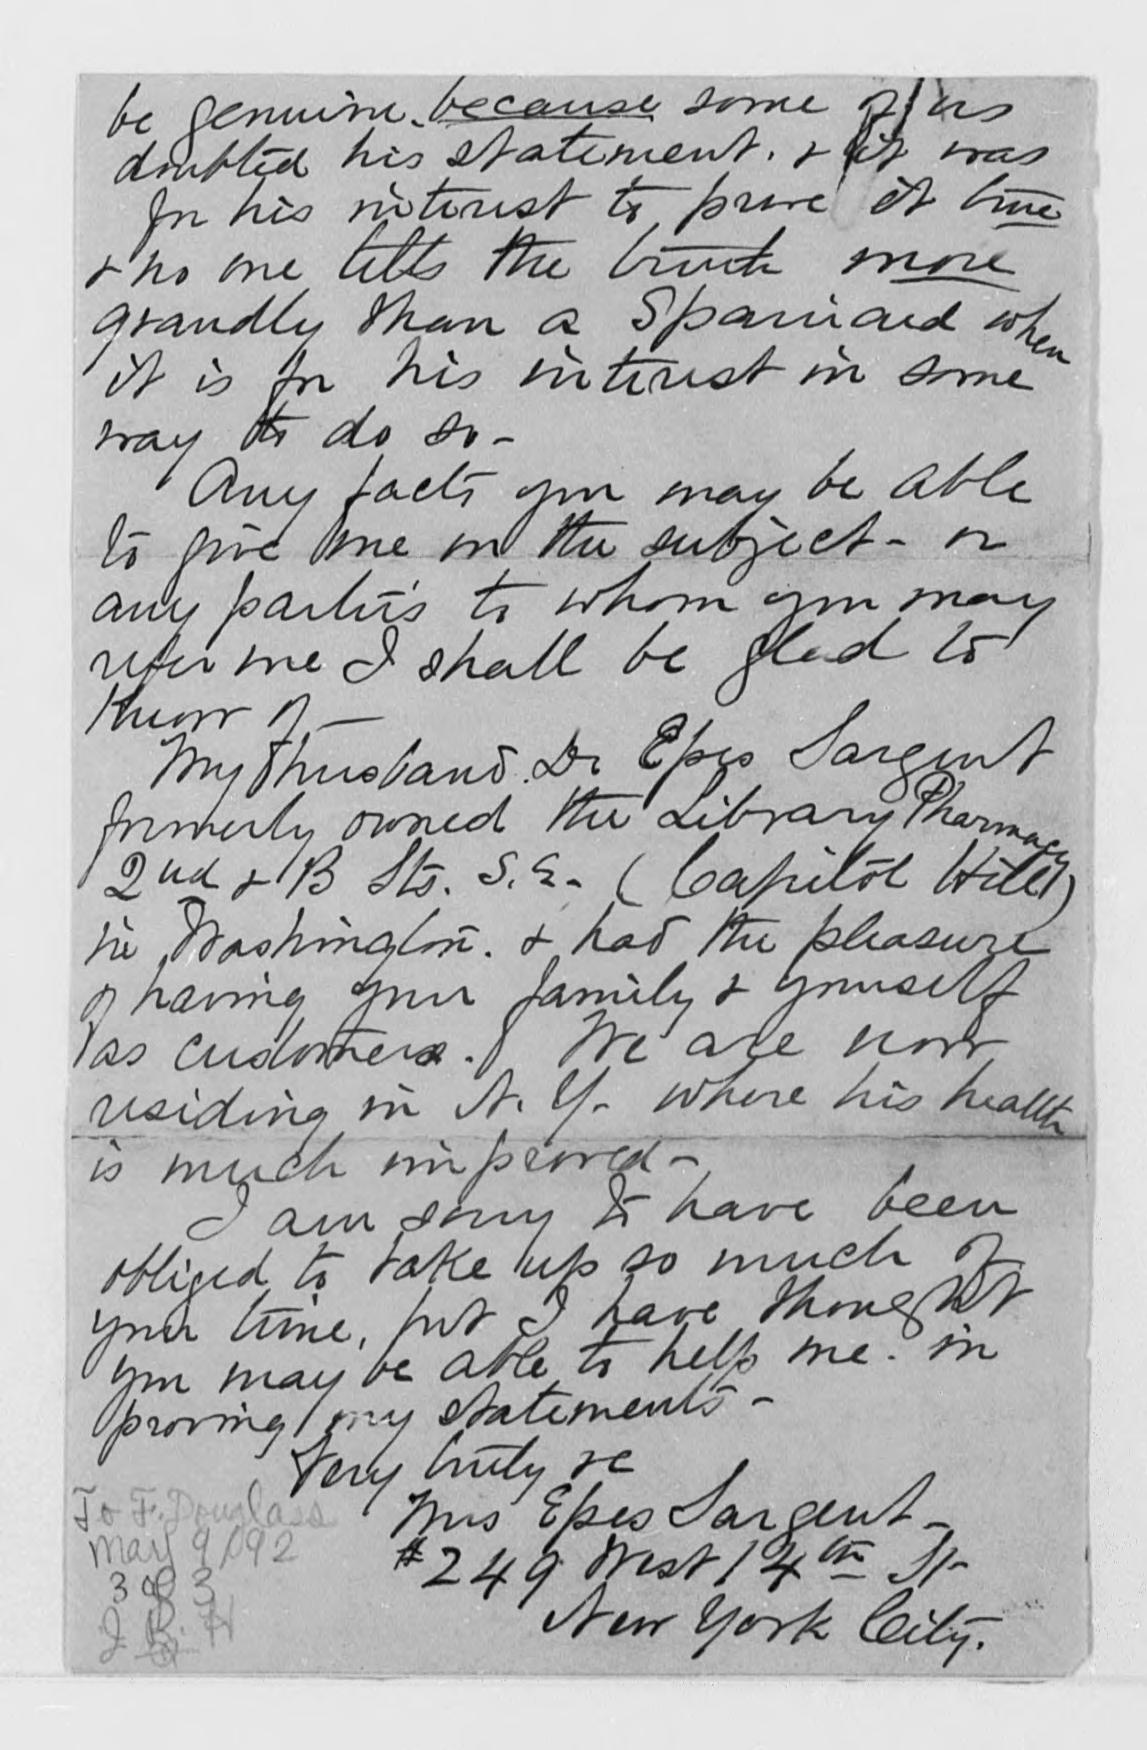 be genuine. because some of us
doubted his statement. & it was
for his interest to prove it true
& no one tells the truth more
grandly than a Spaniard when
it is for his interest in some
way to do so -
Any facts you may be able
to give me on the subject - or
any parties to whom you may
refer me I shall be glad to
know of -
My husband Dr Epes Sargent
formerly owned the Library Pharmacy
2nd & B Sts. S.E. (Capitol Hill)
in Washington. & had the pleasure
of having your family & yourself
as customers. We are now
residing in N.Y. where his health
is much improved -
I am sorry to have been
obliged to take up so much of
your time, but I have thought
you may be able to help me. in
proving my statements -
Very truly &c
Mrs Epes Sargent -
#249 West 14th St
New York City.
To F. Douglass
May 9/92
3 of 3